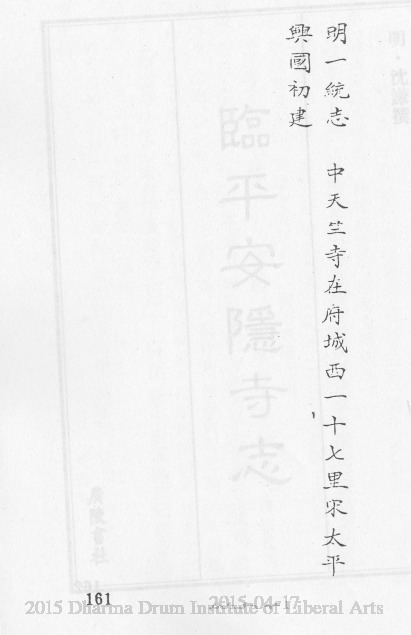 明一統志　中天竺寺在府城西一十七里宋太平
興國初建
臨平安隱寺志
廣陵書社
161
2015 Dharma Drum Institute of Liberal Arts
2015-04-17